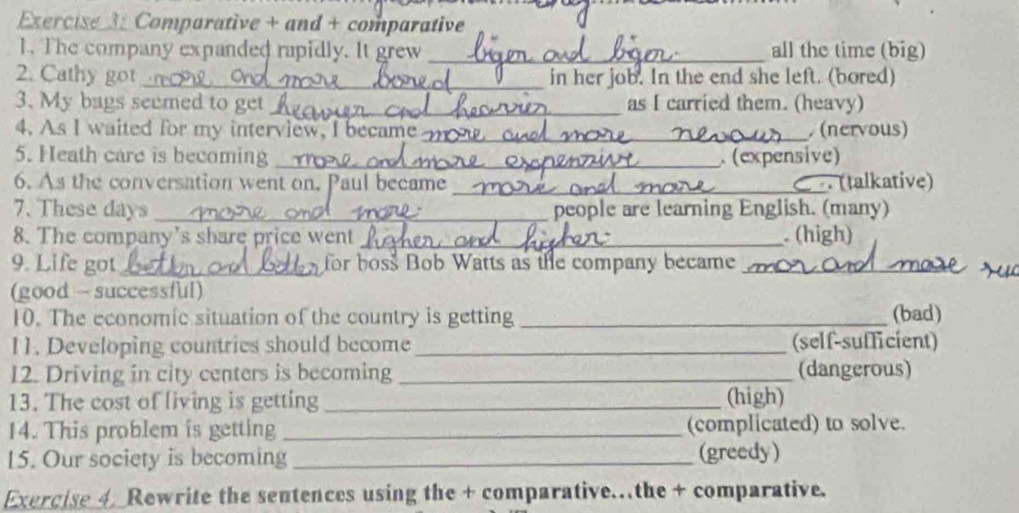 Exercise 3: Comparative + and + comparative
1. The company expanded rapidly. It grew bigen and bigen. all the time (big)
2. Cathy got more and more bored in her job. In the end she left. (bored)
3. My bags seemed to get heavier and heavier as I carried them. (heavy)
4. As I waited for my interview, I became more and more nevous. (nervous)
5. Heath care is becoming more and more expensive. (expensive)
6. As the conversation went on, Paul became more and more (talkative)
7. These days more and more people are learning English. (many)
8. The company's share price went higher and higher. (high)
9. Life got better and better for boss Bob Watts as the company became mor and more
(good – successful)
10. The economic situation of the country is getting (bad)
11. Developing countries should become (self-sufficient)
12. Driving in city centers is becoming (dangerous)
13. The cost of living is getting (high)
14. This problem is getting (complicated) to solve.
15. Our society is becoming (greedy)
Exercise 4. Rewrite the sentences using the + comparative...the + comparative.